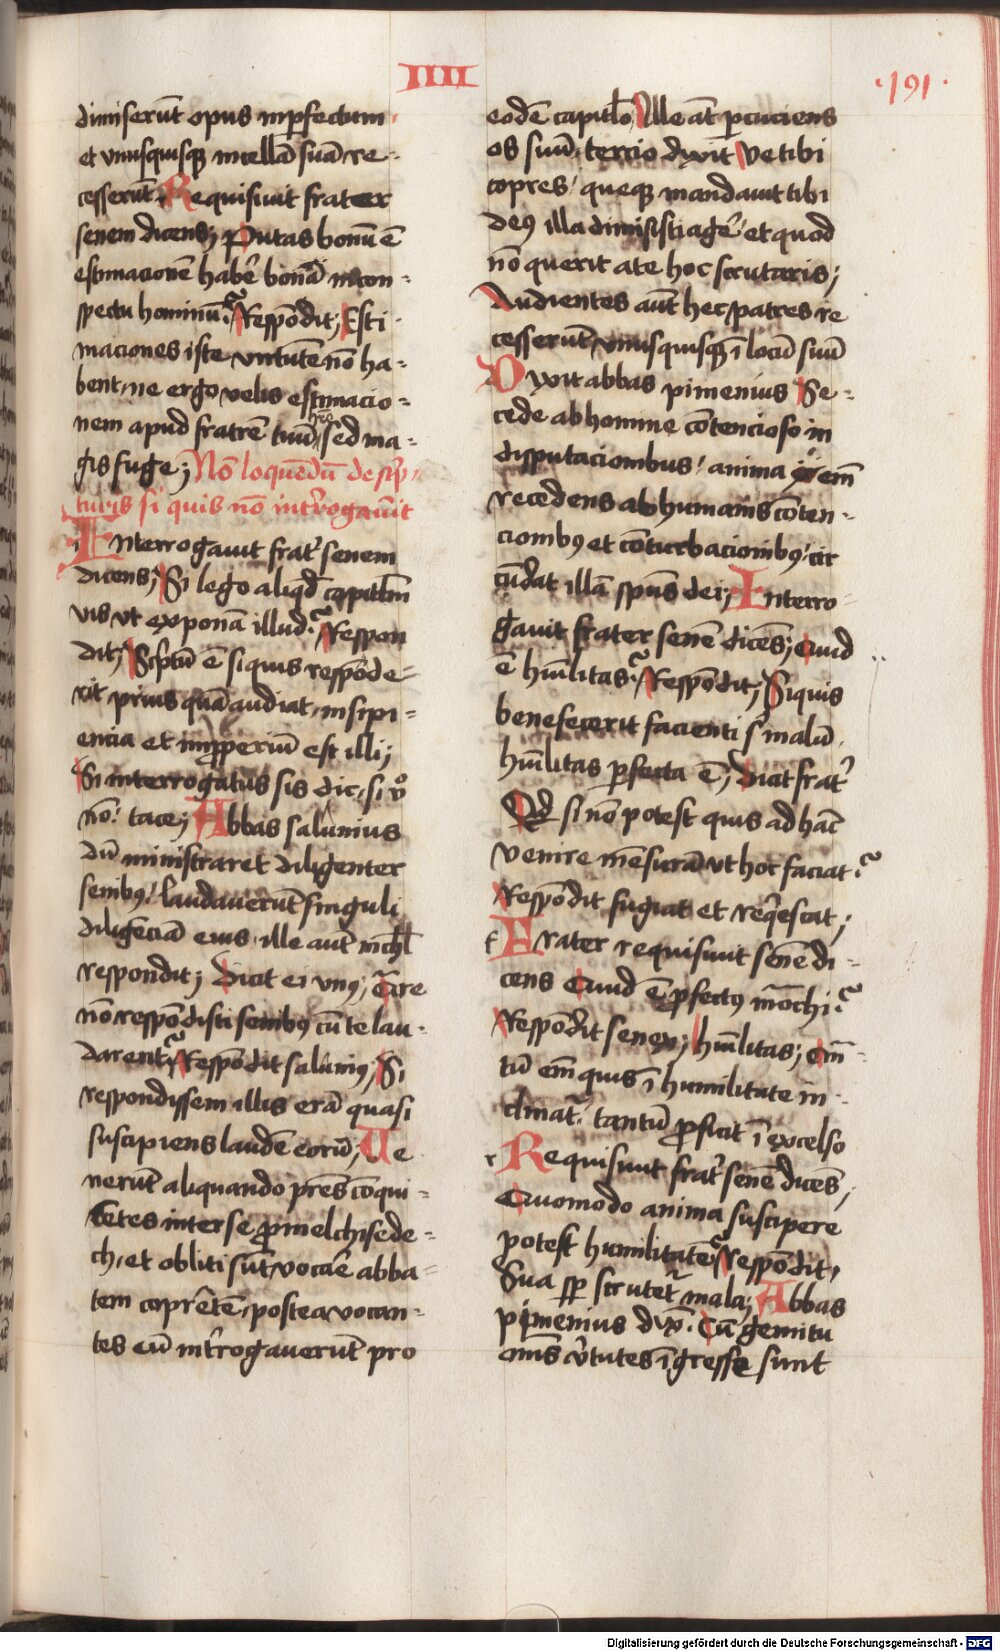 IIII
.191.
dimiserūt opus inp̱fectum
et vnusquisqꝫ incellā suā re-
cesserūt. Requisiuit frater
senem dicens; Putas bonū ē
estimacionē habē̄ bonā incon-
spectu hominū? Respōdit; Esti
maciones iste virtutē nō ha-
bent, ne ergo velis estimacio-
nem apud fratrē tuū, sed ma-
gis fuge; Nō loquēdū de sc̄p-
turis si quis nō int̄rogauit
Interrogauit frat̄ senem
dicens; Si lego aliqd̄ capitl̄m
vis vt exponā illud? Respon
dit; Sc̄ptū ē si quis respōde-
rit prius quā audiat, insipi-
encia et inp̱perium est illi;
Si interrogatus sis dic, si vͦ
nō! tace; Abbas salūnius
dū ministraret diligenter
senibꝰ, laudauerūt singuli
diligēciā eius, ille aut nichl̄
respondit; Dicit ei vnꝰ; Q̄re
nō respōdisti senibꝰ cū te lau-
darent? Respōdit salūniꝰ; Si
respondissem illis erā quasi
suscipiens laudē eorū; Ue
nerūt aliquando pr̄es cōqui-
rētes inter se ꝓ melchisede-
ch, et obliti sūt vocāē abba-
tem coprētē, postea vocan-
tes eū int̄rogauerūt pro
eodē capitl̄o, Ille āt ꝑcuciens
os suū tercio dixit Ue tibi
copres! queqꝫ mandauit tibi
deꝰ illa dimisisti agē̄ et quod
nō querit a te hoc scrutaris;
Audientes aūt hec patres re
cesserūt vnusquisqꝫ ī locū suū
Dixit abbas pimenius Se-
cede ab homine cōtencioso in
disputacionibus! anima em̄
recedens ab humanis cōten-
cionibꝰ et cōturbacionibꝰ, cir
cūdat illā sp̄us dei; Interro-
gauit frater senē dicēs; Quid
ē hūilitas? Respōdit; Si quis
benefecerit facienti s̄ malū
hūilitas ꝑfecta ē; Dicit frat̄
Qd̄ si nō potest quis ad hāc
venire mēsurā vt hoc faciat?
Respōdit fugiat et req̄escat;
Frater requisiuit senē di-
cens Quid ē ꝓfectꝰ mōchi?
Respōdit senex; hūilitas; em̄
tū em̄ quis ī humilitate in-
clinat̄, tantū ꝓficit ī excelso
Requisiuit frat̄ senē dicēs;
Quomodo anima suscipere
potest humilitatē? Respōdit,
Sua sꝑ scrutet̄ mala; Abbas
pimenius dix̄. Cū gemitu
om̄s v̄tutes īgresse sunt